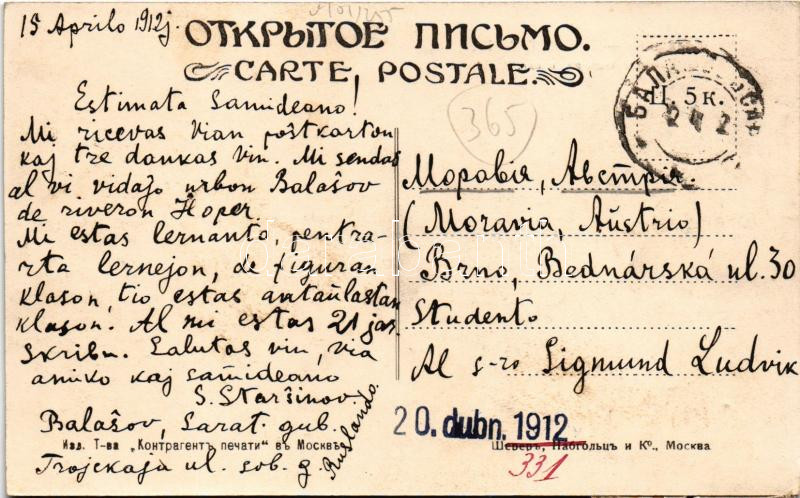 15 Aprilo 1912j.
ОТКРЫТОЕ ПИСЬМО.
CARTE POSTALE.
П. 5 к.
365
Estimata Samideano!
Mi ricevas Vian poŝtkarton
kaj tre dankas vin. Mi sendas
al vi vidaĵo urbon Balaŝov
de riveron Ĥoper.
Mi estas lernanto, pentra-
rta lernejon, de figuran
klason, tio estas antaŭlastan
klason. Al mi estas 21 jar.
Skribu. Salutas vin, via
amiko kaj samideano
S. Starŝinov.
Balaŝov, Sarat. gub.
Trojckaja ul. sob. d.
Ruslando.
Моравія, Австрія.
(Moravia, Aŭstrio)
Brno, Bednárská ul. 30
Studento
Al s-ro Sigmund Ludvik
20. dubn. 1912
331
Изд. Т-ва „Контрагентъ печати“ въ Москвѣ
Шереръ, Набгольцъ и Ко., Москва